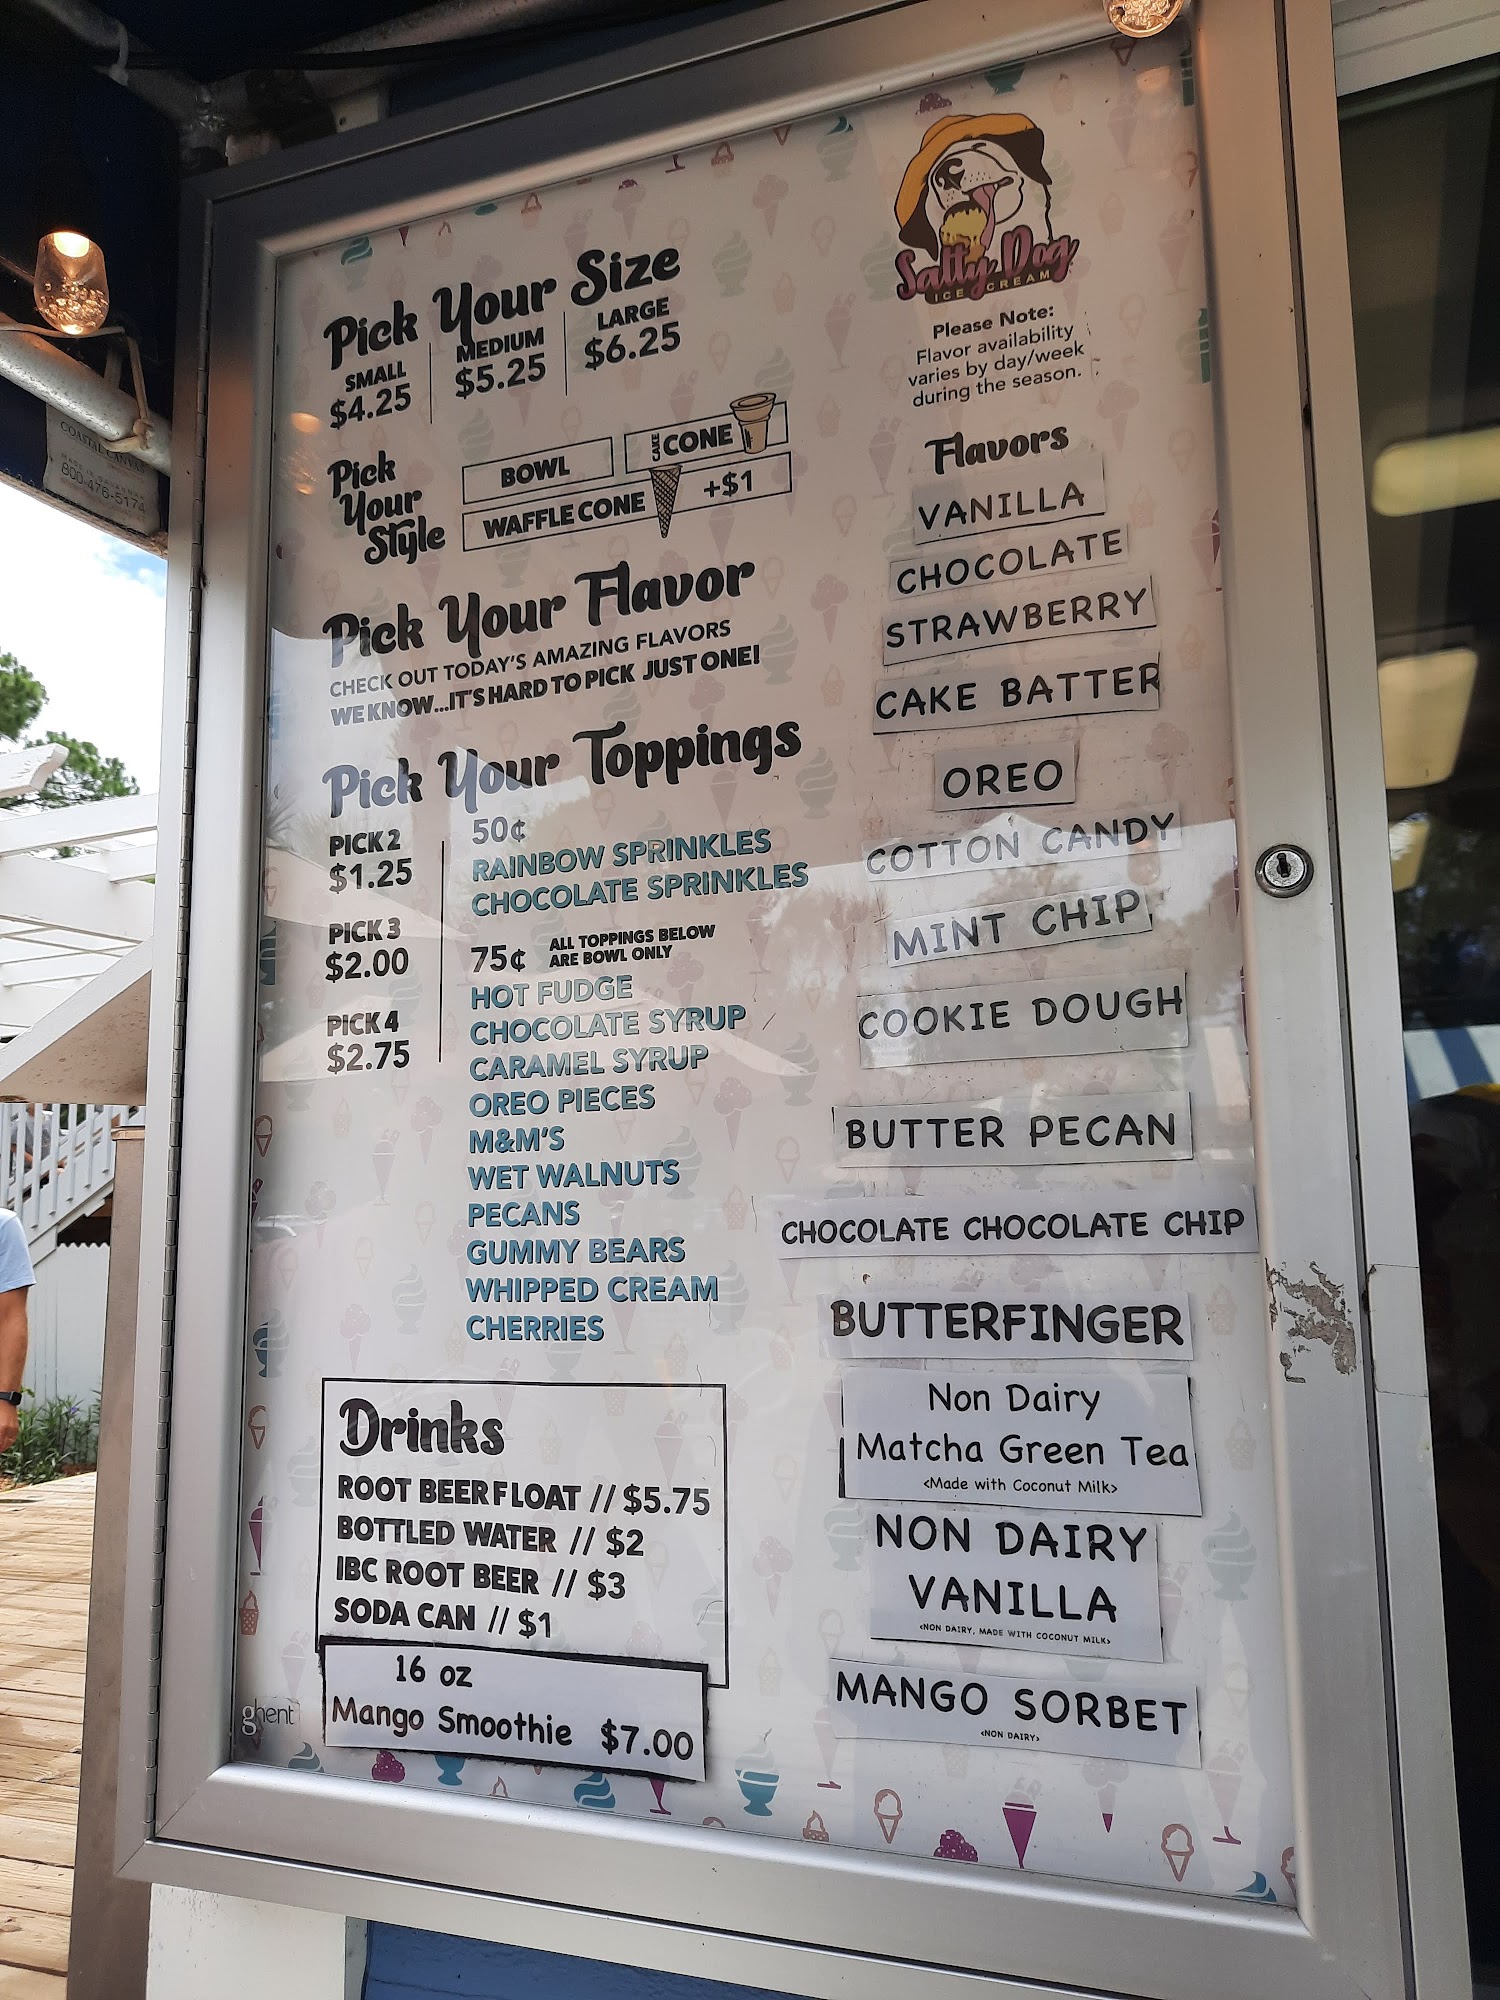 Pick Your Size
SMALL
$4.25
MEDIUM
$5.25
LARGE
$6.25
Pick
Your
Style
BOWL
CAKE CONE
WAFFLE CONE +$1
Pick Your Flavor
CHECK OUT TODAY'S AMAZING FLAVORS
WE KNOW...IT'S HARD TO PICK JUST ONE!
Pick Your Toppings
PICK 2
$1.25
PICK 3
$2.00
PICK 4
$2.75
50¢
RAINBOW SPRINKLES
CHOCOLATE SPRINKLES
75¢ ALL TOPPINGS BELOW
ARE BOWL ONLY
HOT FUDGE
CHOCOLATE SYRUP
CARAMEL SYRUP
OREO PIECES
M&M'S
WET WALNUTS
PECANS
GUMMY BEARS
WHIPPED CREAM
CHERRIES
Drinks
ROOT BEER FLOAT // $5.75
BOTTLED WATER // $2
IBC ROOT BEER // $3
SODA CAN // $1
16 oz
Mango Smoothie $7.00
ghent
Salty Dog
ICE CREAM
Please Note:
Flavor availability
varies by day/week
during the season.
Flavors
VANILLA
CHOCOLATE
STRAWBERRY
CAKE BATTER
OREO
COTTON CANDY
MINT CHIP
COOKIE DOUGH
BUTTER PECAN
CHOCOLATE CHOCOLATE CHIP
BUTTERFINGER
Non Dairy
Matcha Green Tea
<Made with Coconut Milk>
NON DAIRY
VANILLA
<NON DAIRY, MADE WITH COCONUT MILK>
MANGO SORBET
<NON DAIRY>
COASTAL CANVAS
800-476-5174